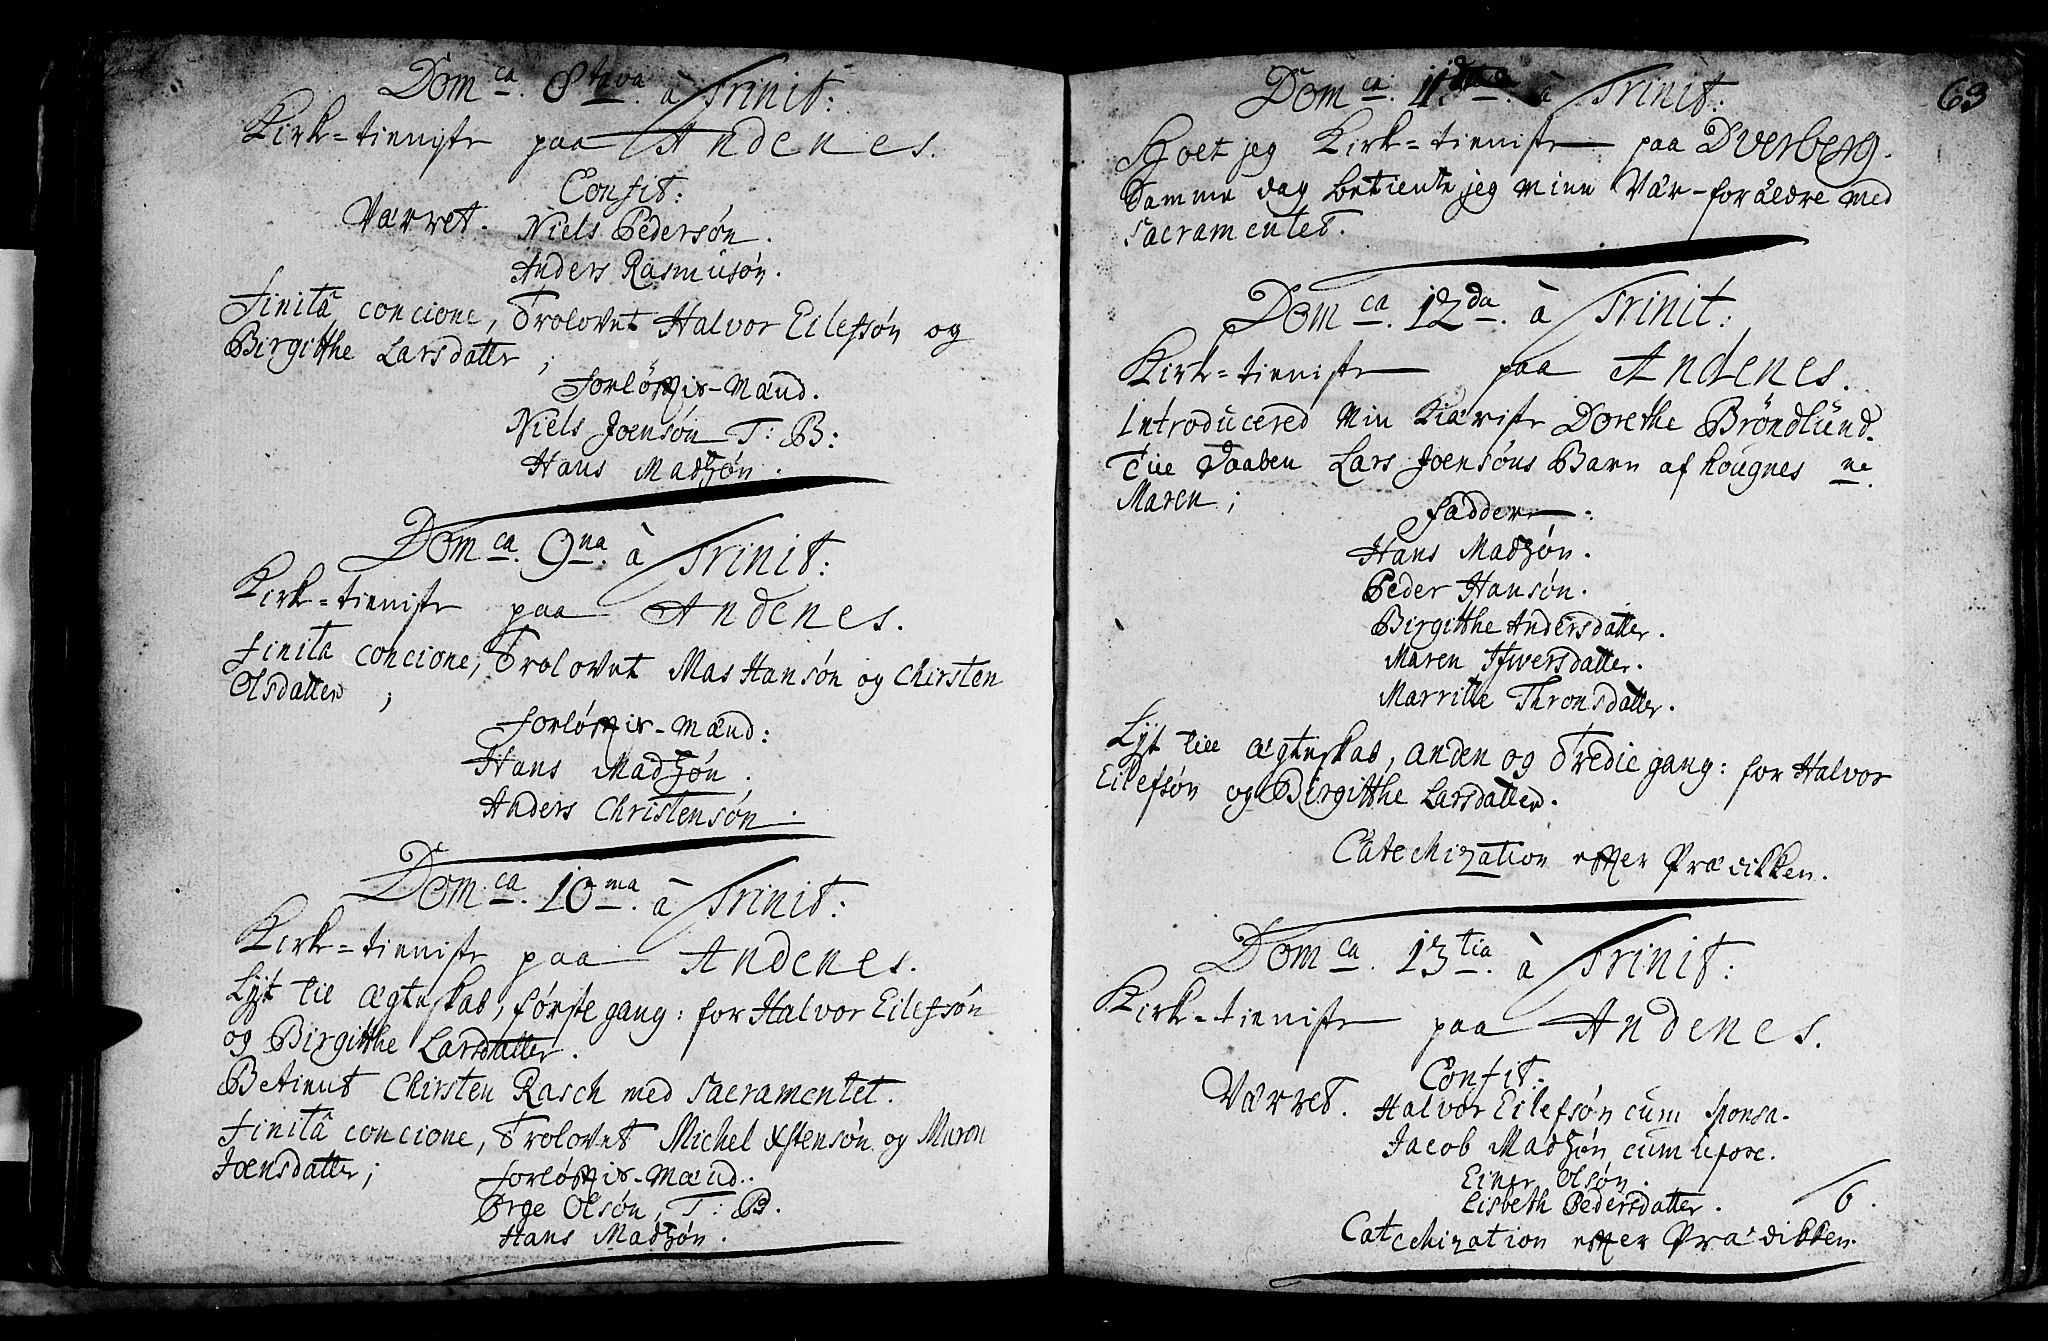 Dom ca. 8tava. à Trinit:
Kirk-tieniste paa Andenes.
Confit:
Værret. Niels Pedersøn.
Anders Rasmusøn.
Finitâ concione, Trolovet Halvor Eilefsøn og
Birgitthe Larsdatter;
Forløftis-Mænd.
Niels Joensøn T: B:
Hans Madzøn.
Dom ca. 9na. à Trinit:
Kirk-tieniste paa Andenes.
Finita concione, Trolovet Mas Hansøn og Chirsten
Olsdatter;
Forløftis-Mænd:
Hans Madzøn.
Anders Christensøn.
Dom ca. 10ma. à Trinit:
Kirk-tieniste paa Andenes.
Lyst till Ægteskab, første gang: for Halvor Eilefsøn
og Birgitthe Larsdatter.
Betient Chirsten Rasch med Sacramentet.
Finitâ concione, Trolovet Michel Xstensøn og Maren
Joensdatter;
Forløftis-Mænd.
Ørge Olsøn, T: B.
Hans Madzøn.
63
Dom ca. 11 à Trinit:
jeg Kirk-tieniste paa Dverberg.
Samme dag betiente jeg mine Vær-forældre med
Sacramentet.
Dom ca. 12da. à Trinit:
Kirk-tieniste paa Andenes.
Introducered Min Kiæriste Dorethe Brøndlund.
Till Daaben Lars Joensøns Barn af kougnes ne.
Maren;
Fadder:
Hans Madzøn.
Peder Hansøn.
Birgitthe Andersdatter.
Maren Ifwersdatter.
Marritte Thronsdatter.
Lyst till Ægteskab, anden og Tredie gang: for Halvor
Eilefsøn og Birgitthe Larsdatter.
Catechization efter Prædikken.
Dom ca. 13tia. à Trinit:
Kirk-tieniste paa Andenes.
Confit:
Værret. Halvor Eilefsøn cum Sponsa.
Jacob Madzøn cum Uxore.
Einer Olsøn.
Lisbeth Pedersdatter. / 6.
Catechization efter Prædikken.